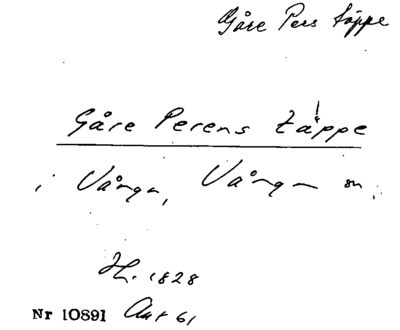 Gåre Pers täppe
Gåre Perens täppe
i Vånga, Vånga sn.
Hl. 1828
Nr 10891 Ant 61